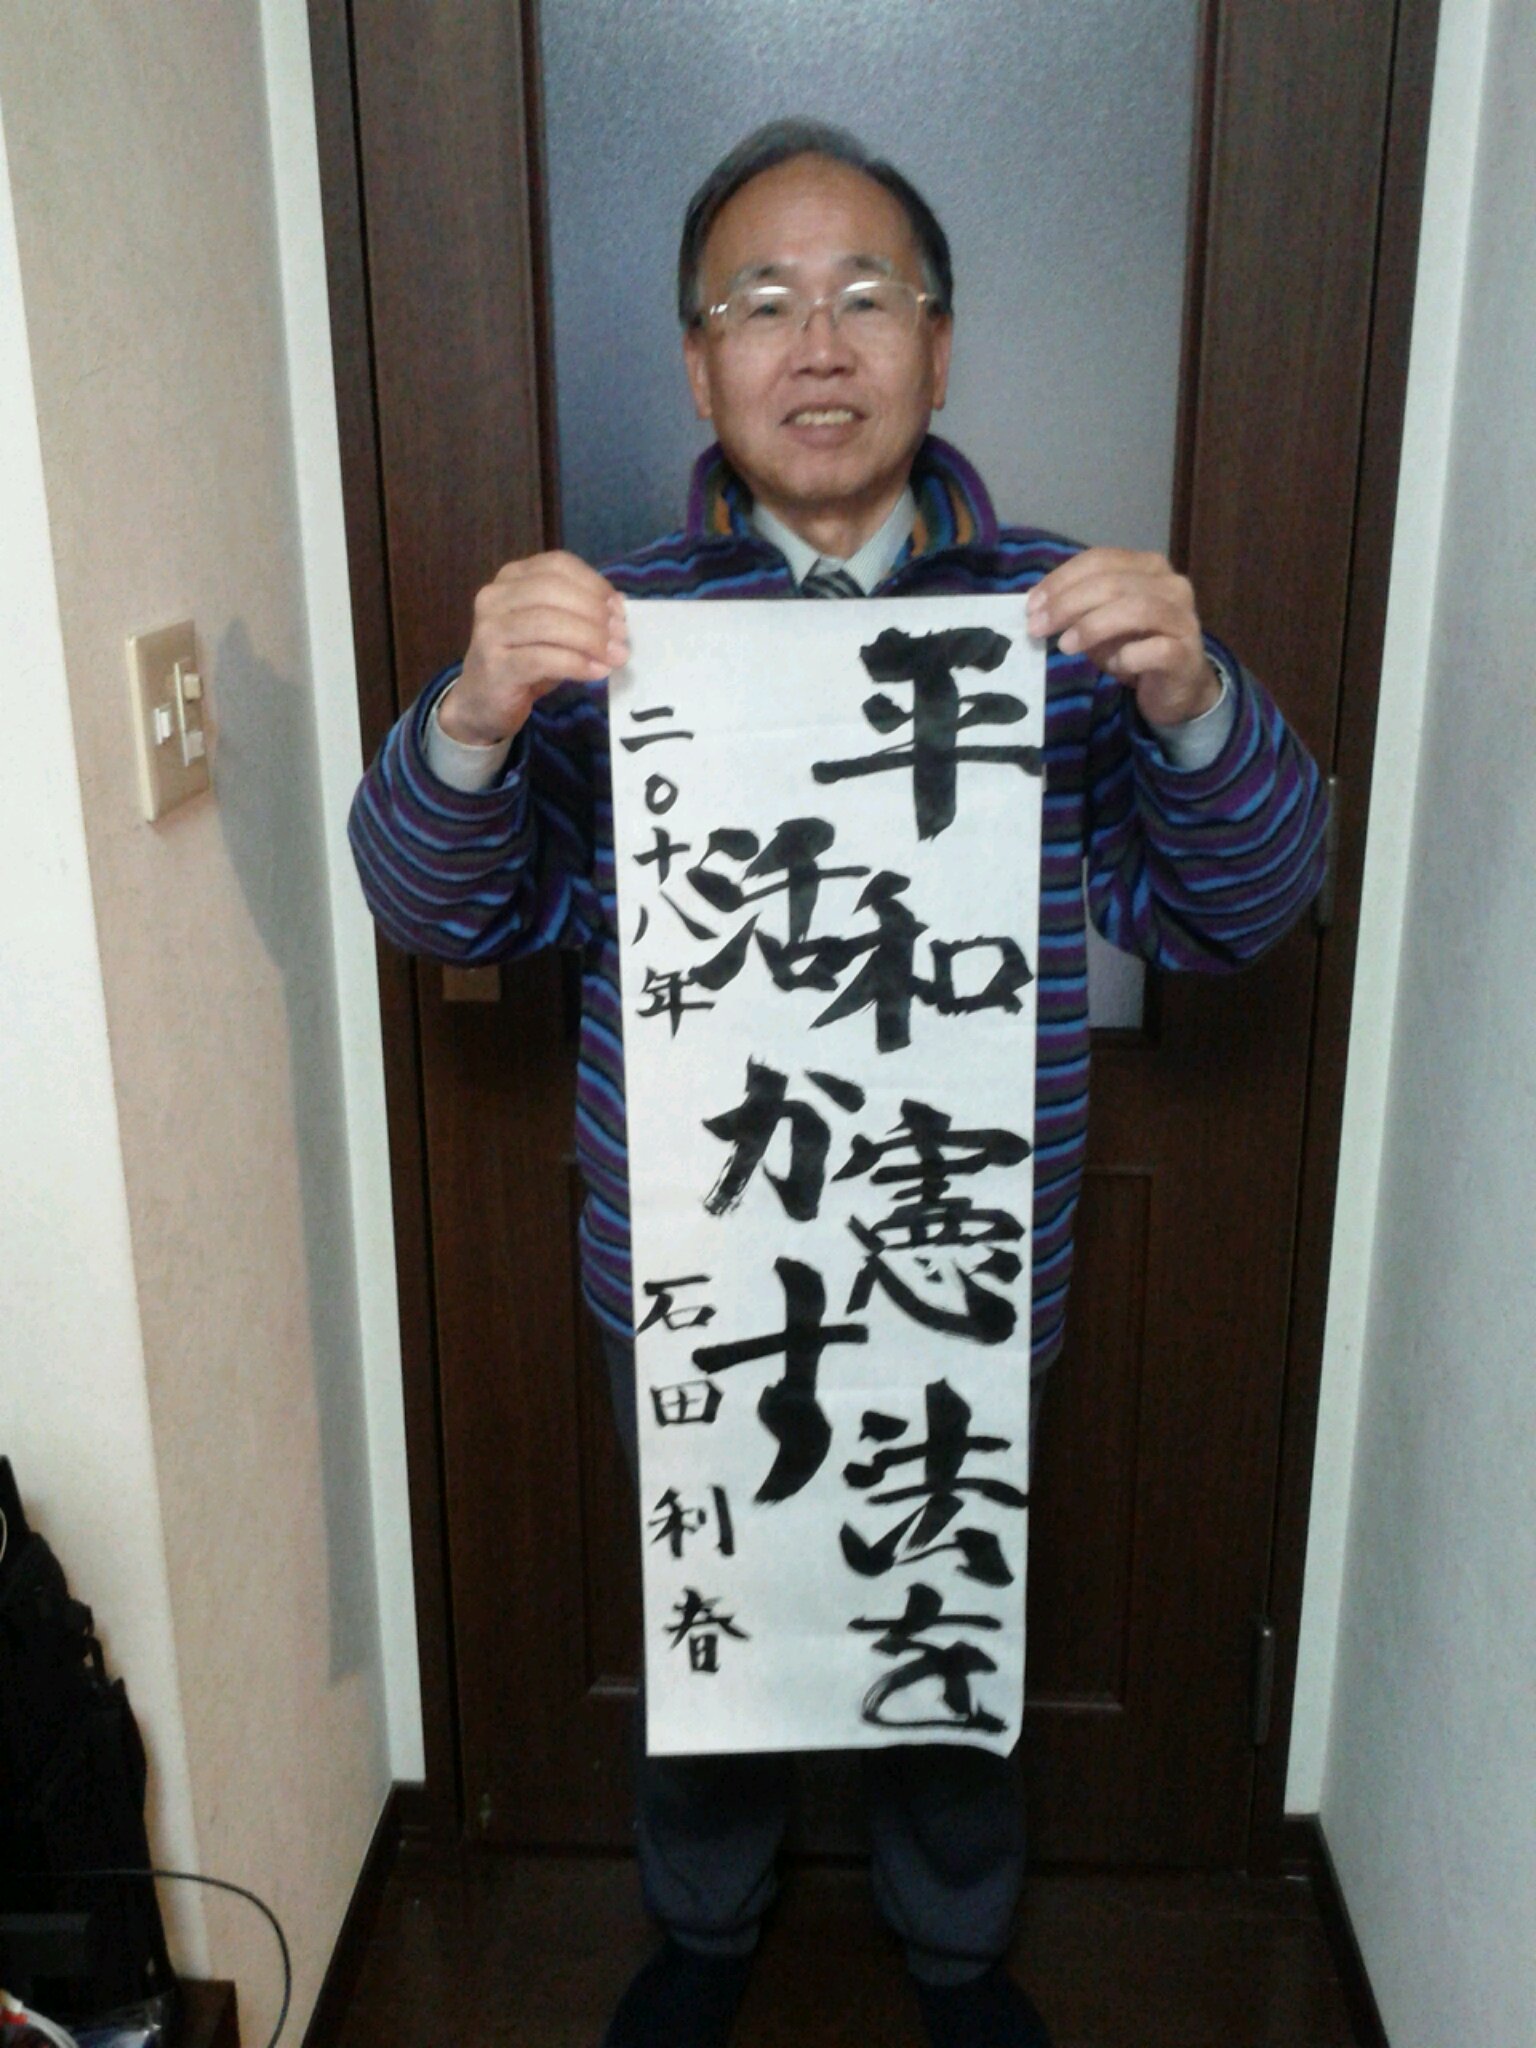 平和憲法を
活かす
二〇十八年 石田利春